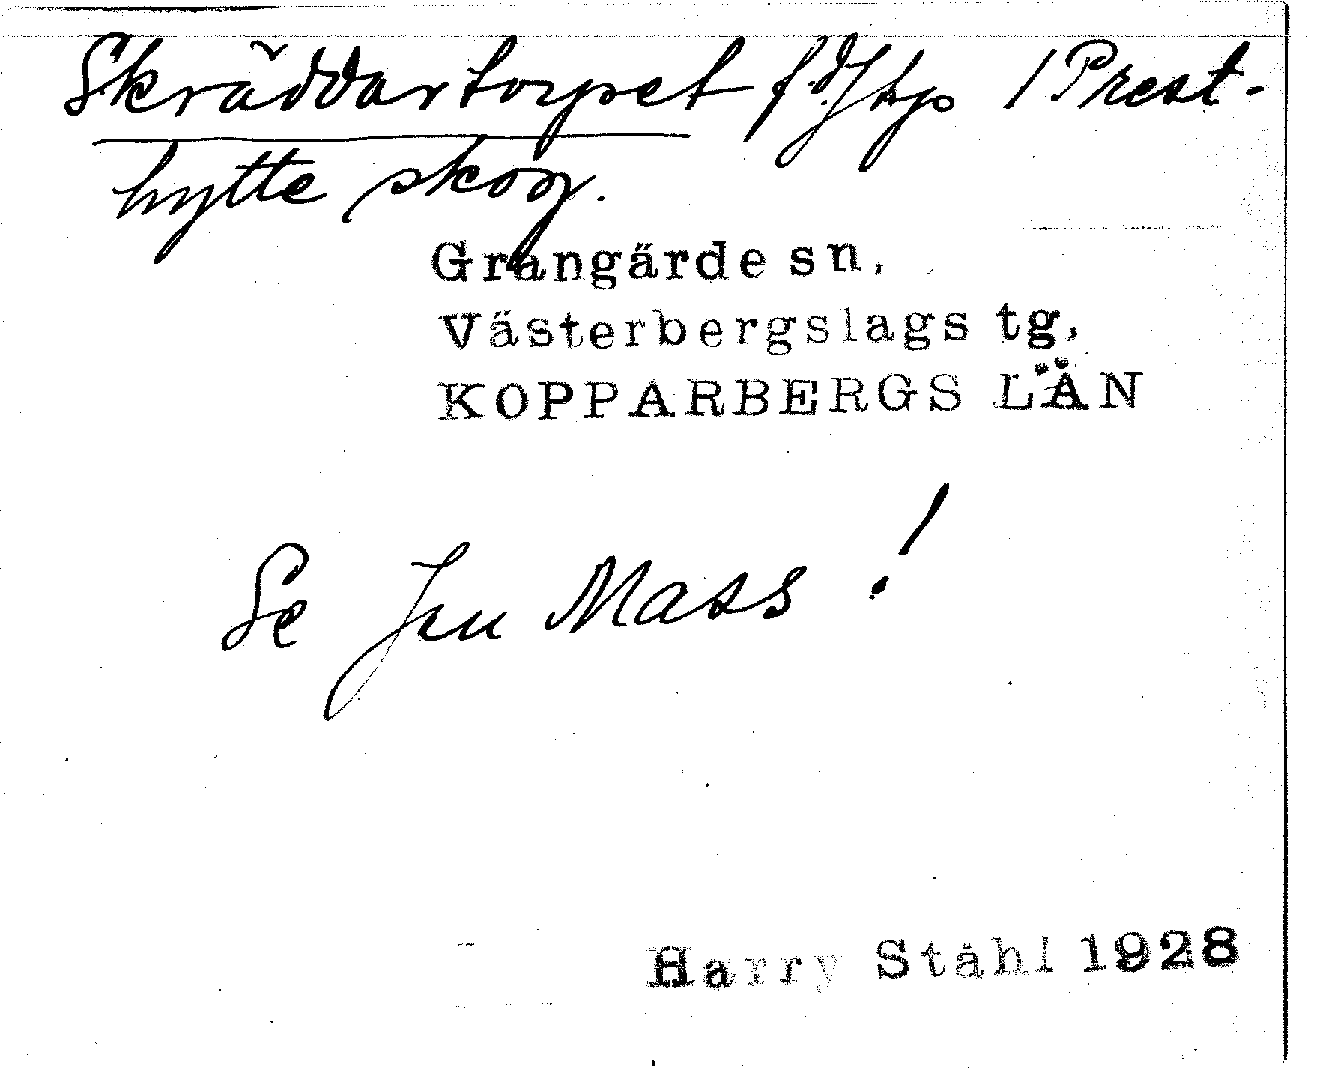 Skräddartorpet f.d. thp / Prest-
hytte skog.
Grangärde sn,
Västerbergslags tg,
KOPPARBERGS LÄN
Se Jen Mass!
Harry Ståhl 1928